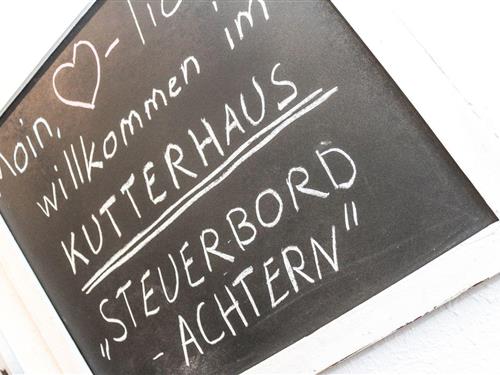 Moin, ♡-lich
willkommen im
KUTTERHAUS
„STEUERBORD
-ACHTERN"